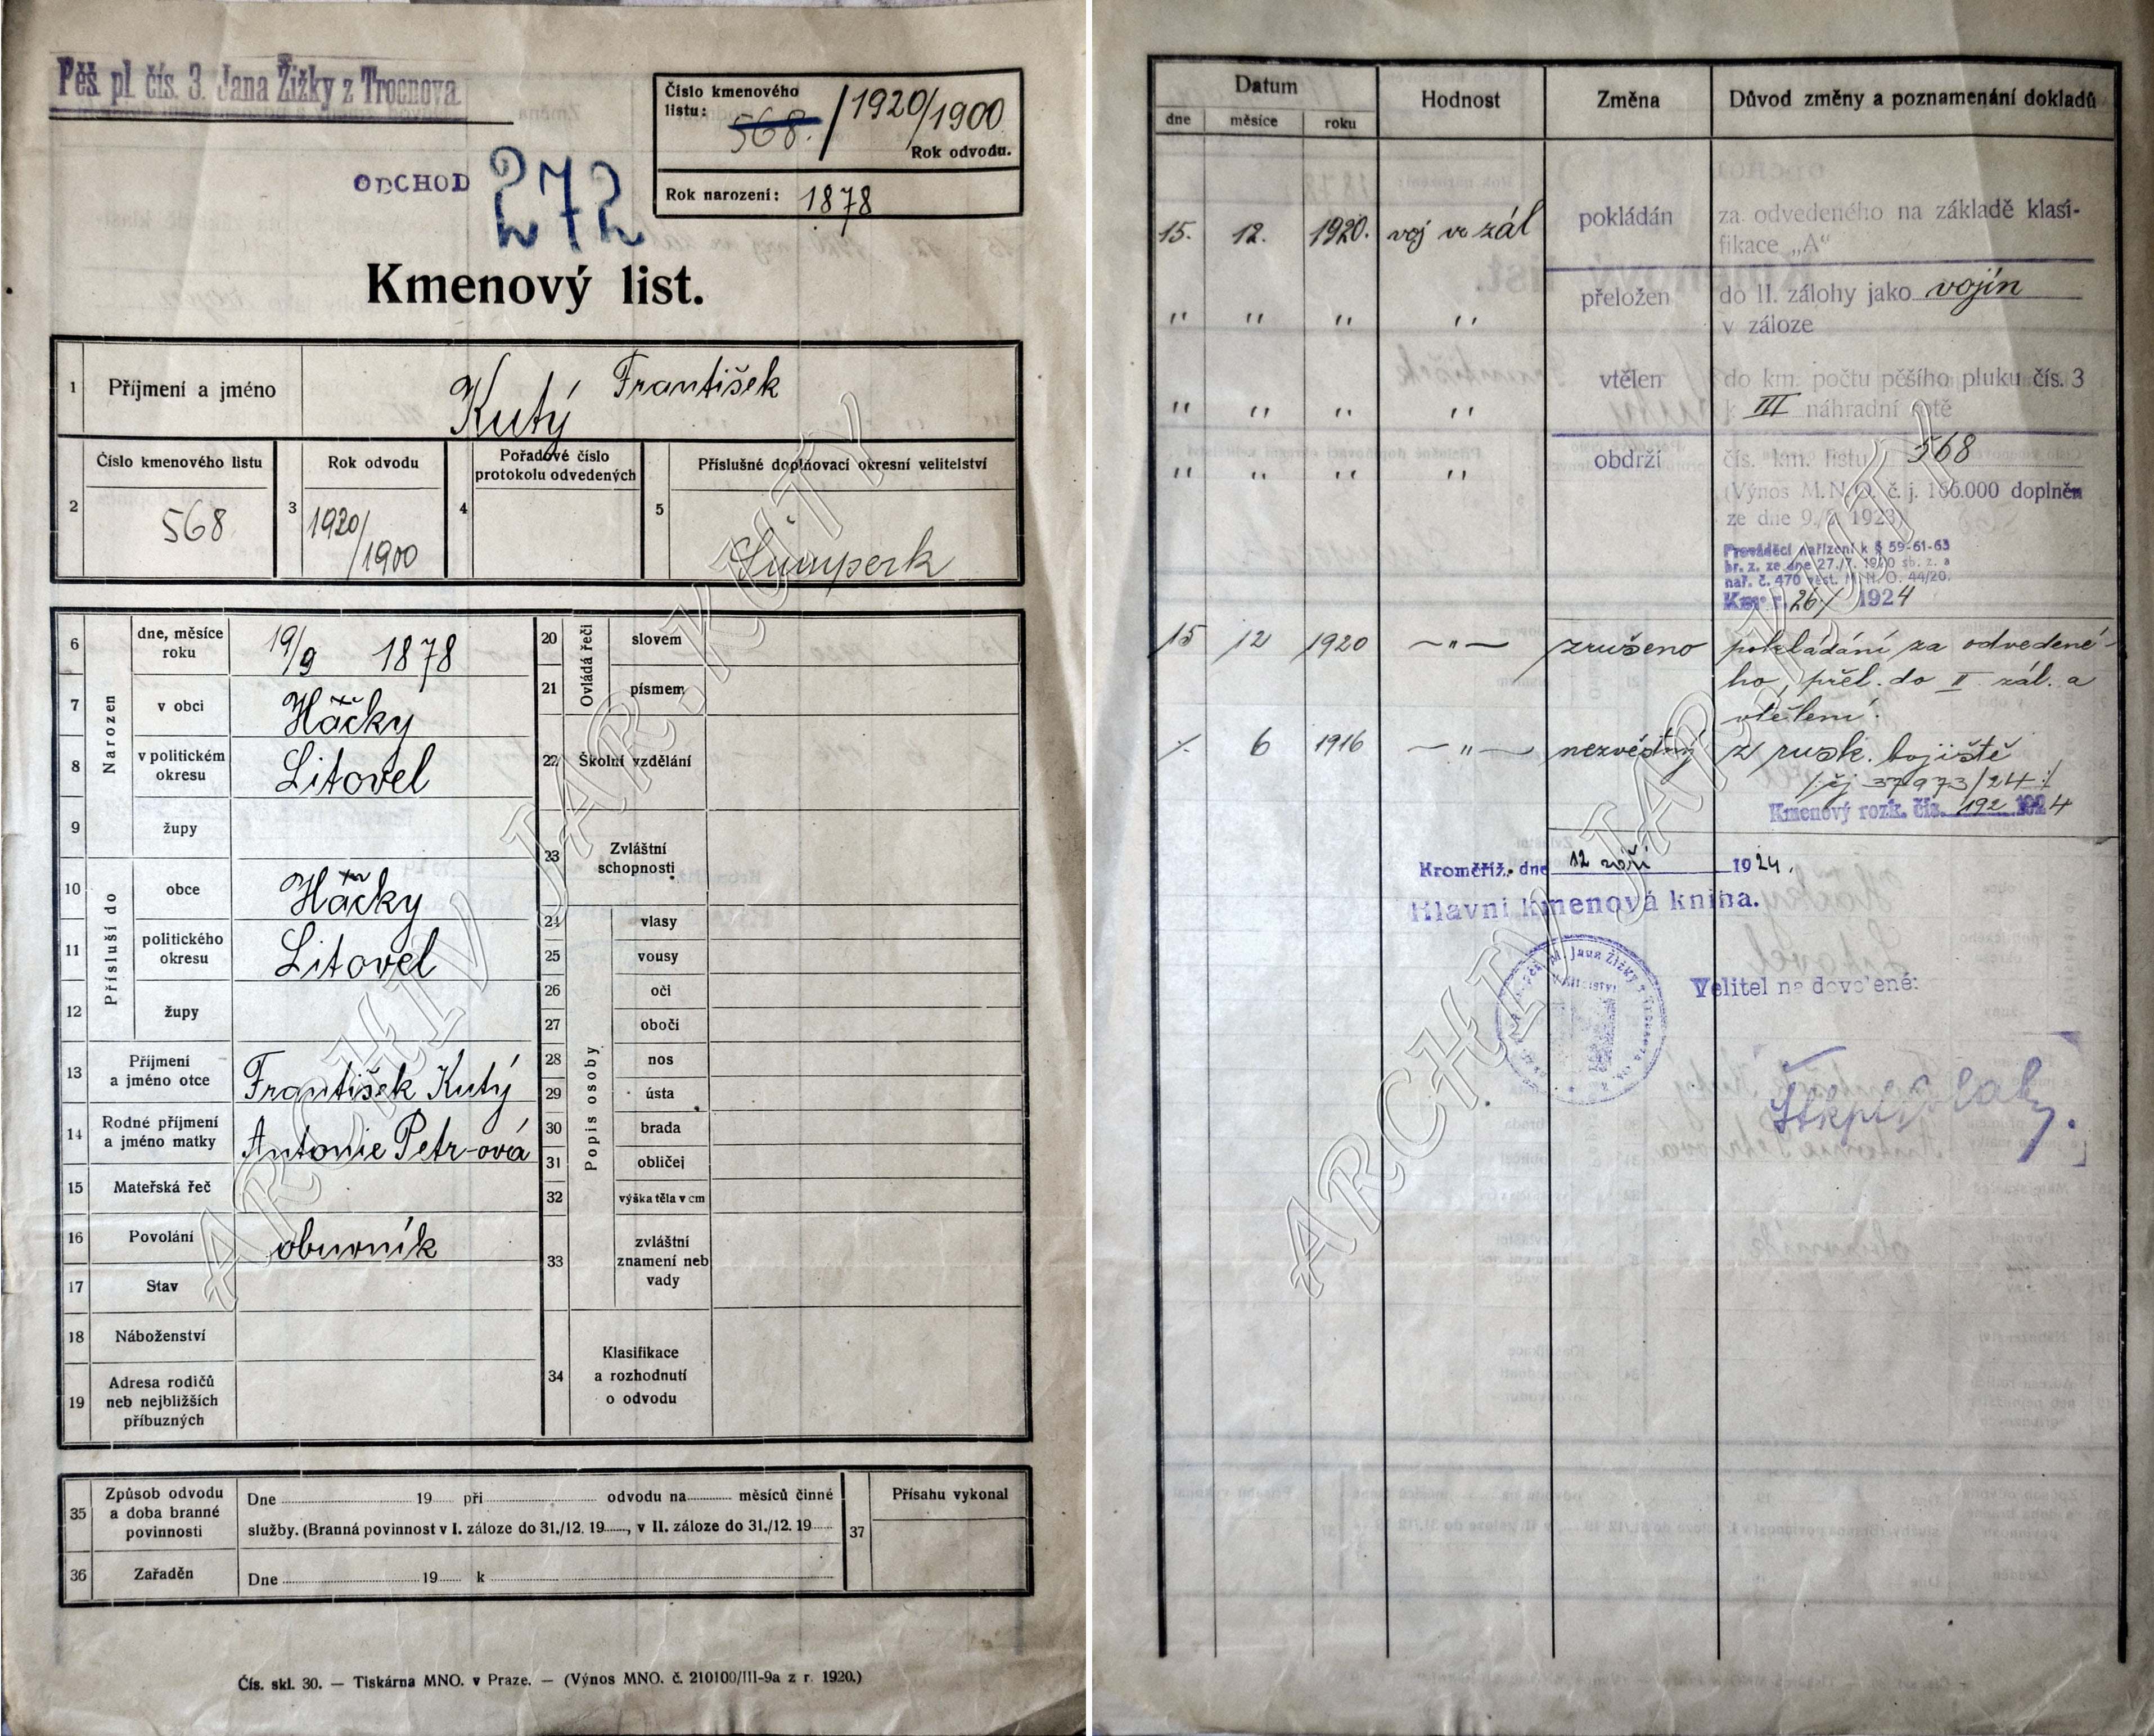 Pěš. pl. čís. 3. Jana Žižky z Trocnova.
Číslo kmenového
listu: 568. / 1920/1900
Rok odvodu.
ODCHOD 272
Rok narození: 1878
Kmenový list.
1 Příjmení a jméno Kutý František
Číslo kmenového listu Rok odvodu Pořadové číslo protokolu odvedených Příslušné doplňovací okresní velitelství
2 568 3 1920/1900 4 5 Šumperk
Narozen
6 dne, měsíce roku 19/9 1878
7 v obci Háčky
8 v politickém okresu Litovel
9 župy
Přísluší do
10 obce Háčky
11 politického okresu Litovel
12 župy
13 Příjmení a jméno otce František Kutý
14 Rodné příjmení a jméno matky Antonie Petr-ová
15 Mateřská řeč
16 Povolání obuvník
17 Stav
18 Náboženství
19 Adresa rodičů neb nejbližších příbuzných
Ovládá řeči
20 slovem
21 písmem
22 Školní vzdělání
23 Zvláštní schopnosti
Popis osoby
24 vlasy
25 vousy
26 oči
27 obočí
28 nos
29 ústa
30 brada
31 obličej
32 výška těla v cm
33 zvláštní znamení neb vady
34 Klasifikace a rozhodnutí o odvodu
35 Způsob odvodu a doba branné povinnosti
Dne 19 při odvodu na měsíců činné
služby. (Branná povinnost v I. záloze do 31./12. 19, v II. záloze do 31./12. 19
36 Zařaděn Dne 19 k
37 Přísahu vykonal
Čís. skl. 30. — Tiskárna MNO. v Praze. — (Výnos MNO. č. 210100/III-9a z r. 1920.)
ARCHIV JAR.KUTÝ
Datum Hodnost Změna Důvod změny a poznamenání dokladů
dne měsíce roku
15. 12. 1920. voj ve zál pokládán za odvedeného na základě klasi-
fikace „A“
" " " " přeložen do II. zálohy jako vojín
v záloze
" " " " vtělen do km. počtu pěšího pluku čís. 3
k III náhradní rotě
" " " " obdrží čís. km. listu 568
(Výnos M.N.O. č. j. 166.000 doplněn
ze dne 9./ 1923)
Prováděcí nařízení k § 59-61-63
br. z. ze dne 27./7. 1920 sb. z. a
nař. č. 470 věst. M. N. O. 44/20.
Km r 26/ 1924
15 12 1920 —"— zrušeno pokládání za odvedené-
ho, přel. do II zál. a
vtělení.
6 1916 —"— nezvěstný z rusk. bojiště
/: čj 37973/24 :/
Kmenový rozk. čís. 192 1924
Kroměříž. dne 12 září 1924.
Hlavní kmenová kniha.
Velitel na dovolené:
ARCHIV JAR.KUTÝ